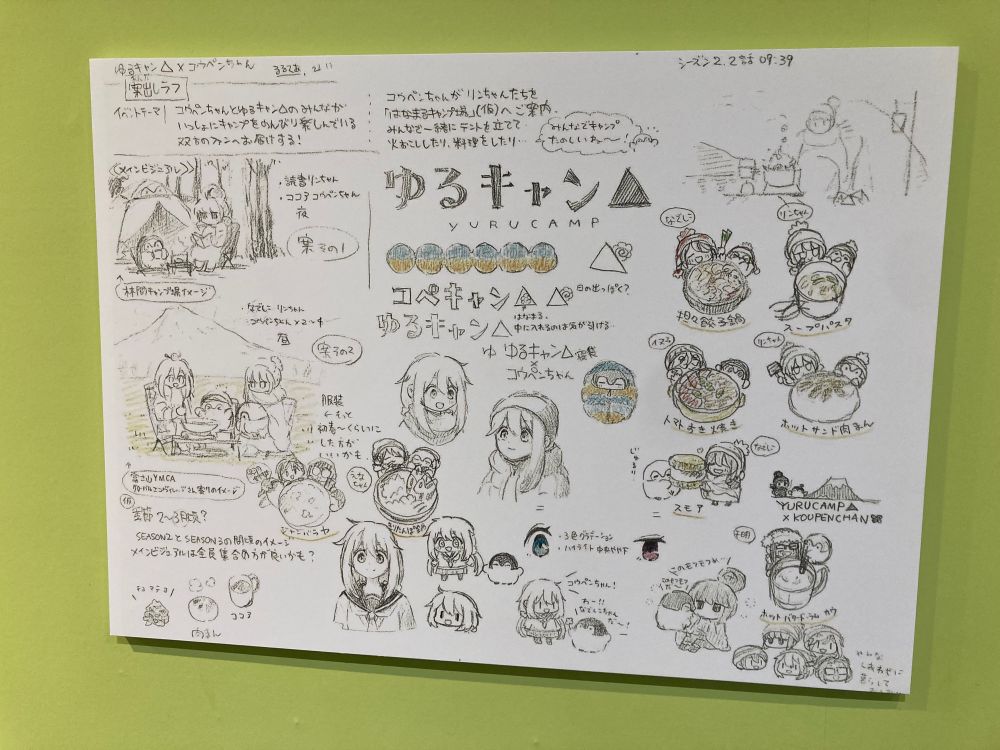 ゆるキャン△×コウペンちゃん
るるてあ
案出しラフ
イベントテーマ
コウペンちゃんとゆるキャン△のみんなが
いっしょにキャンプをのんびり楽しんでいる
双方のファンへお届けする!
コウペンちゃんがリンちゃんたちを
「はなまるキャンプ場」(仮)へご案内。
みんなで一緒にテントを立てて
火おこししたり、料理をしたり…
みんなでキャンプ
たのしいねぇ〜!
シーズン2. 2話 09:39
《メインビジュアル》
・読書リンちゃん
・ココアコウペンちゃん
夜
案その1
林間キャンプ場イメージ
なでしこ リンちゃん
コウペンちゃん×2〜4
昼
案その2
服装
もっと
初春〜くらいに
した方が
いいかも。
富士山YMCA
仮
季節 2〜3月頃?
SEASON2とSEASON3の間頃のイメージ
メインビジュアルは全員集合の方が良いかも?
肉まん
ココア
ゆるキャン△
YURUCAMP
コペキャン△
日の出っぽく?
はなまる。
中に入れるのは気が引ける…
ゆるキャン△
ゆ ゆるキャン△
×
コウペンちゃん
なでしこ
坦々餃子鍋
リンちゃん
スープパスタ
イヌ子
トマトすき焼き
リンちゃん
ホットサンド肉まん
ジャンバラヤ
えな
ちゃん
きりたんぽ鍋
じゅるり
なでしこ
スモア
YURUCAMP△
×KOUPENCHAN
・3色グラデーション
・ハイライト中央やや下
コウペンちゃん!
わー!!
なでしこちゃん
だ〜!
千明
ホットバタードラムカウ
みんな
しあわせに
暮らして